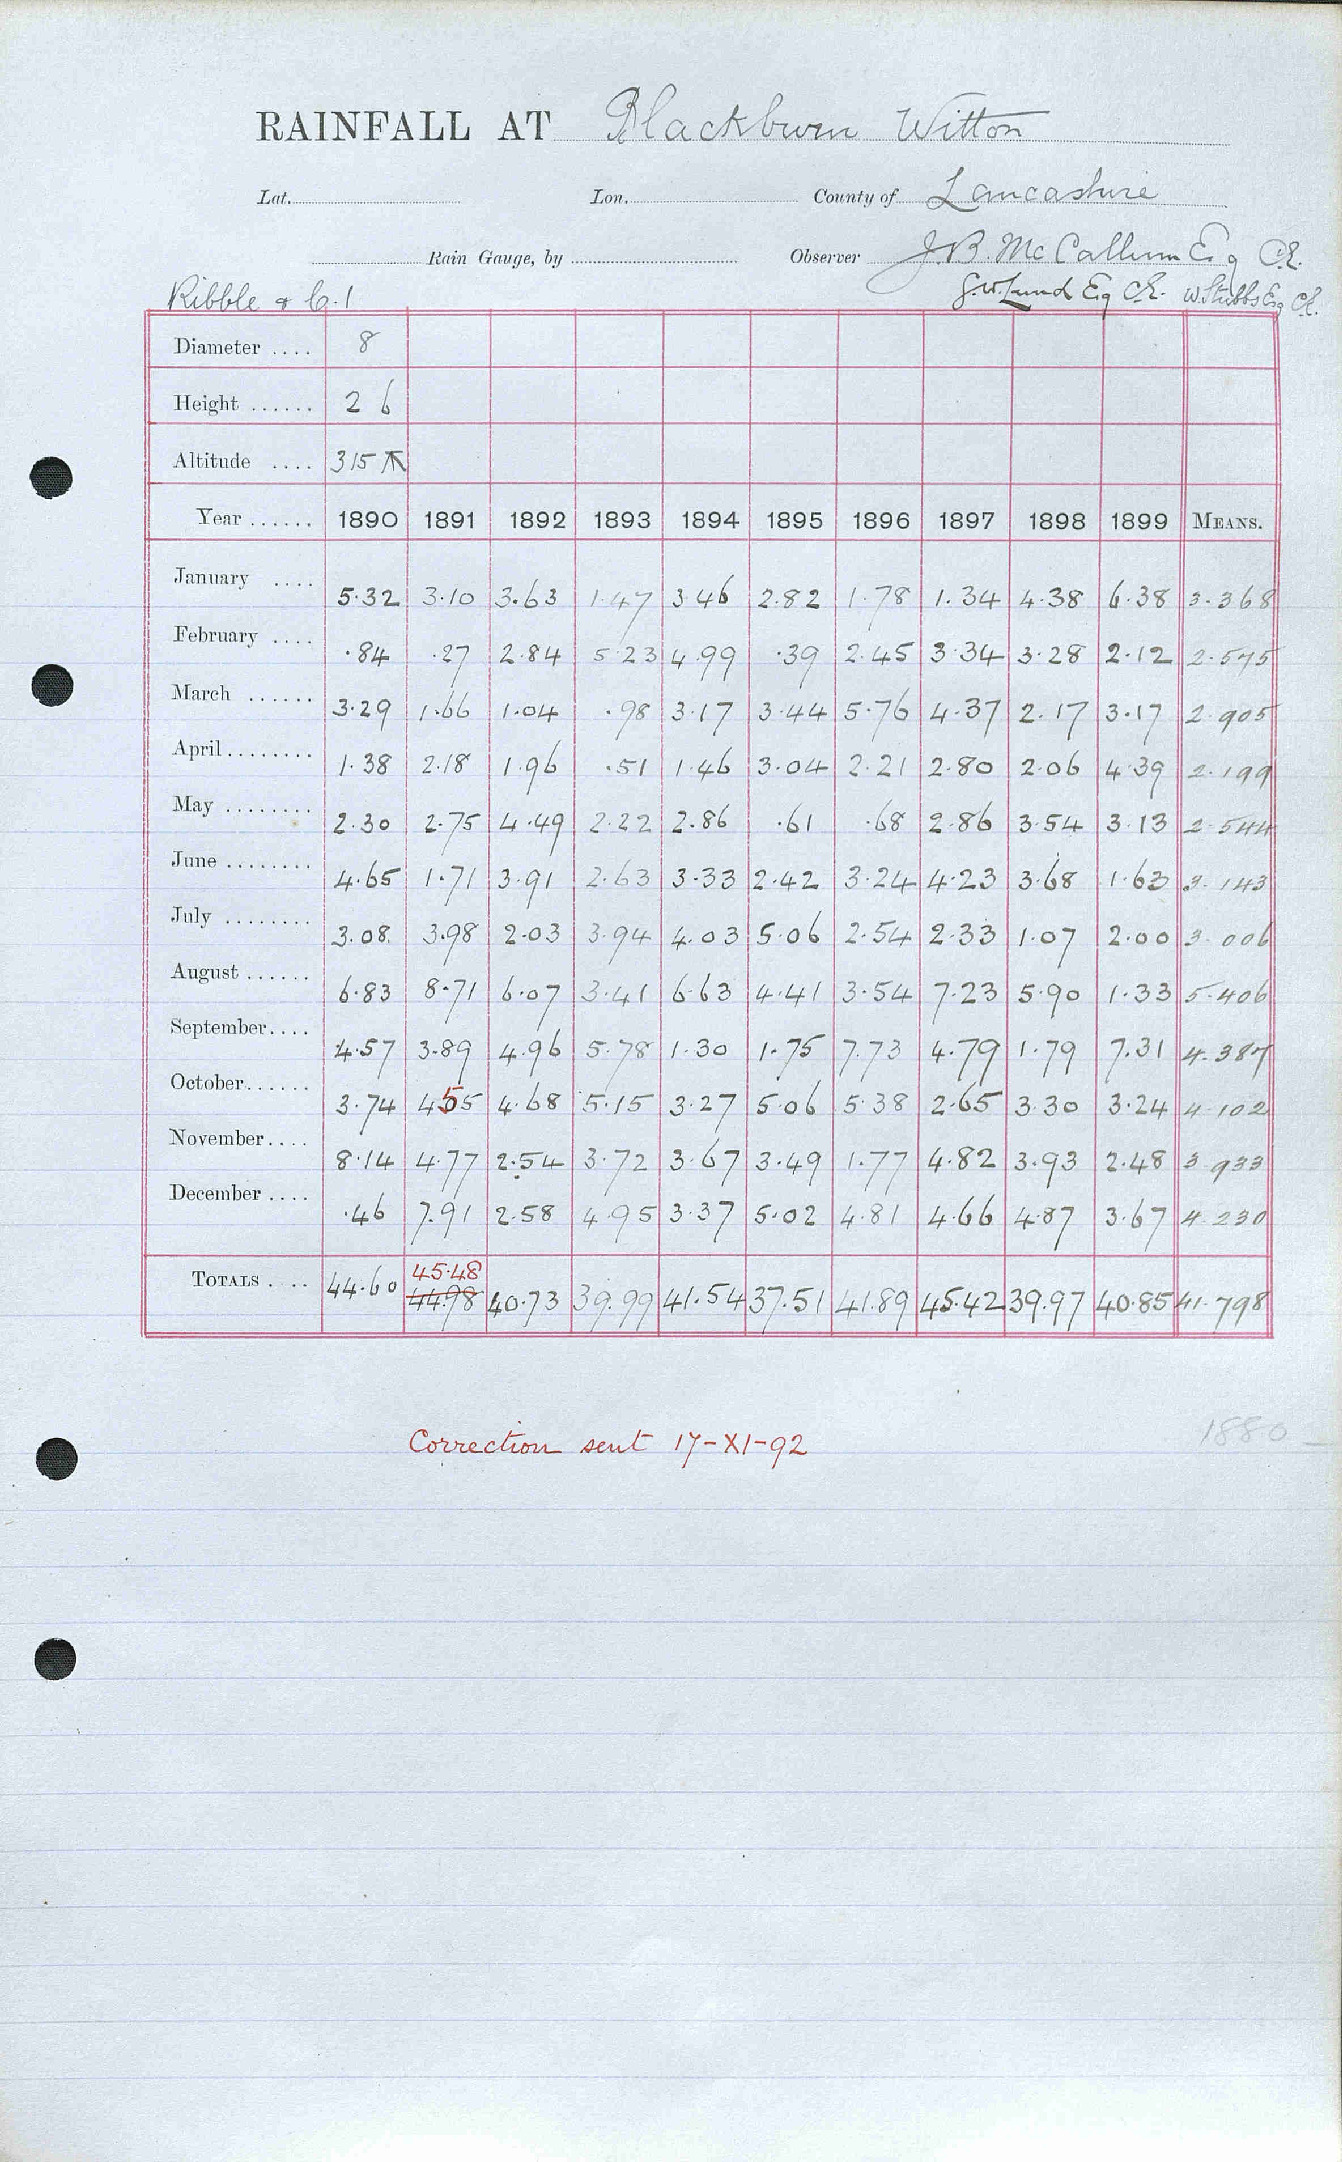 RAINFALL AT Blackburn Witton
Lat. Lon. County of Lancashire
Rain Gauge, by Observer J. B. McCallum Esq C.E.
Ribble & C.1 G.W. Lund Esq C.E. W. Stubbs Esq C.E.
Diameter .... 8
Height ...... 2 6
Altitude .... 315
Year ...... 1890 1891 1892 1893 1894 1895 1896 1897 1898 1899 MEANS.
January .... 5.32 3.10 3.63 1.47 3.46 2.82 1.78 1.34 4.38 6.38 3.368
February .... .84 .27 2.84 5.23 4.99 .39 2.45 3.34 3.28 2.12 2.575
March ...... 3.29 1.66 1.04 .98 3.17 3.44 5.76 4.37 2.17 3.17 2.905
April ........ 1.38 2.18 1.96 .51 1.46 3.04 2.21 2.80 2.06 4.39 2.199
May ........ 2.30 2.75 4.49 2.22 2.86 .61 .68 2.86 3.54 3.13 2.544
June ........ 4.65 1.71 3.91 2.63 3.33 2.42 3.24 4.23 3.68 1.63 3.143
July ........ 3.08 3.98 2.03 3.94 4.03 5.06 2.54 2.33 1.07 2.00 3.006
August ...... 6.83 8.71 6.07 3.41 6.63 4.41 3.54 7.23 5.90 1.33 5.406
September.... 4.57 3.89 4.96 5.78 1.30 1.75 7.73 4.79 1.79 7.31 4.387
October...... 3.74 4.55 4.68 5.15 3.27 5.06 5.38 2.65 3.30 3.24 4.102
November.... 8.14 4.77 2.54 3.72 3.67 3.49 1.77 4.82 3.93 2.48 3.933
December .... .46 7.91 2.58 4.95 3.37 5.02 4.81 4.66 4.87 3.67 4.230
45.48
TOTALS .... 44.60 44.98 40.73 39.99 41.54 37.51 41.89 45.42 39.97 40.85 41.798
Correction sent 17-XI-92
1880-